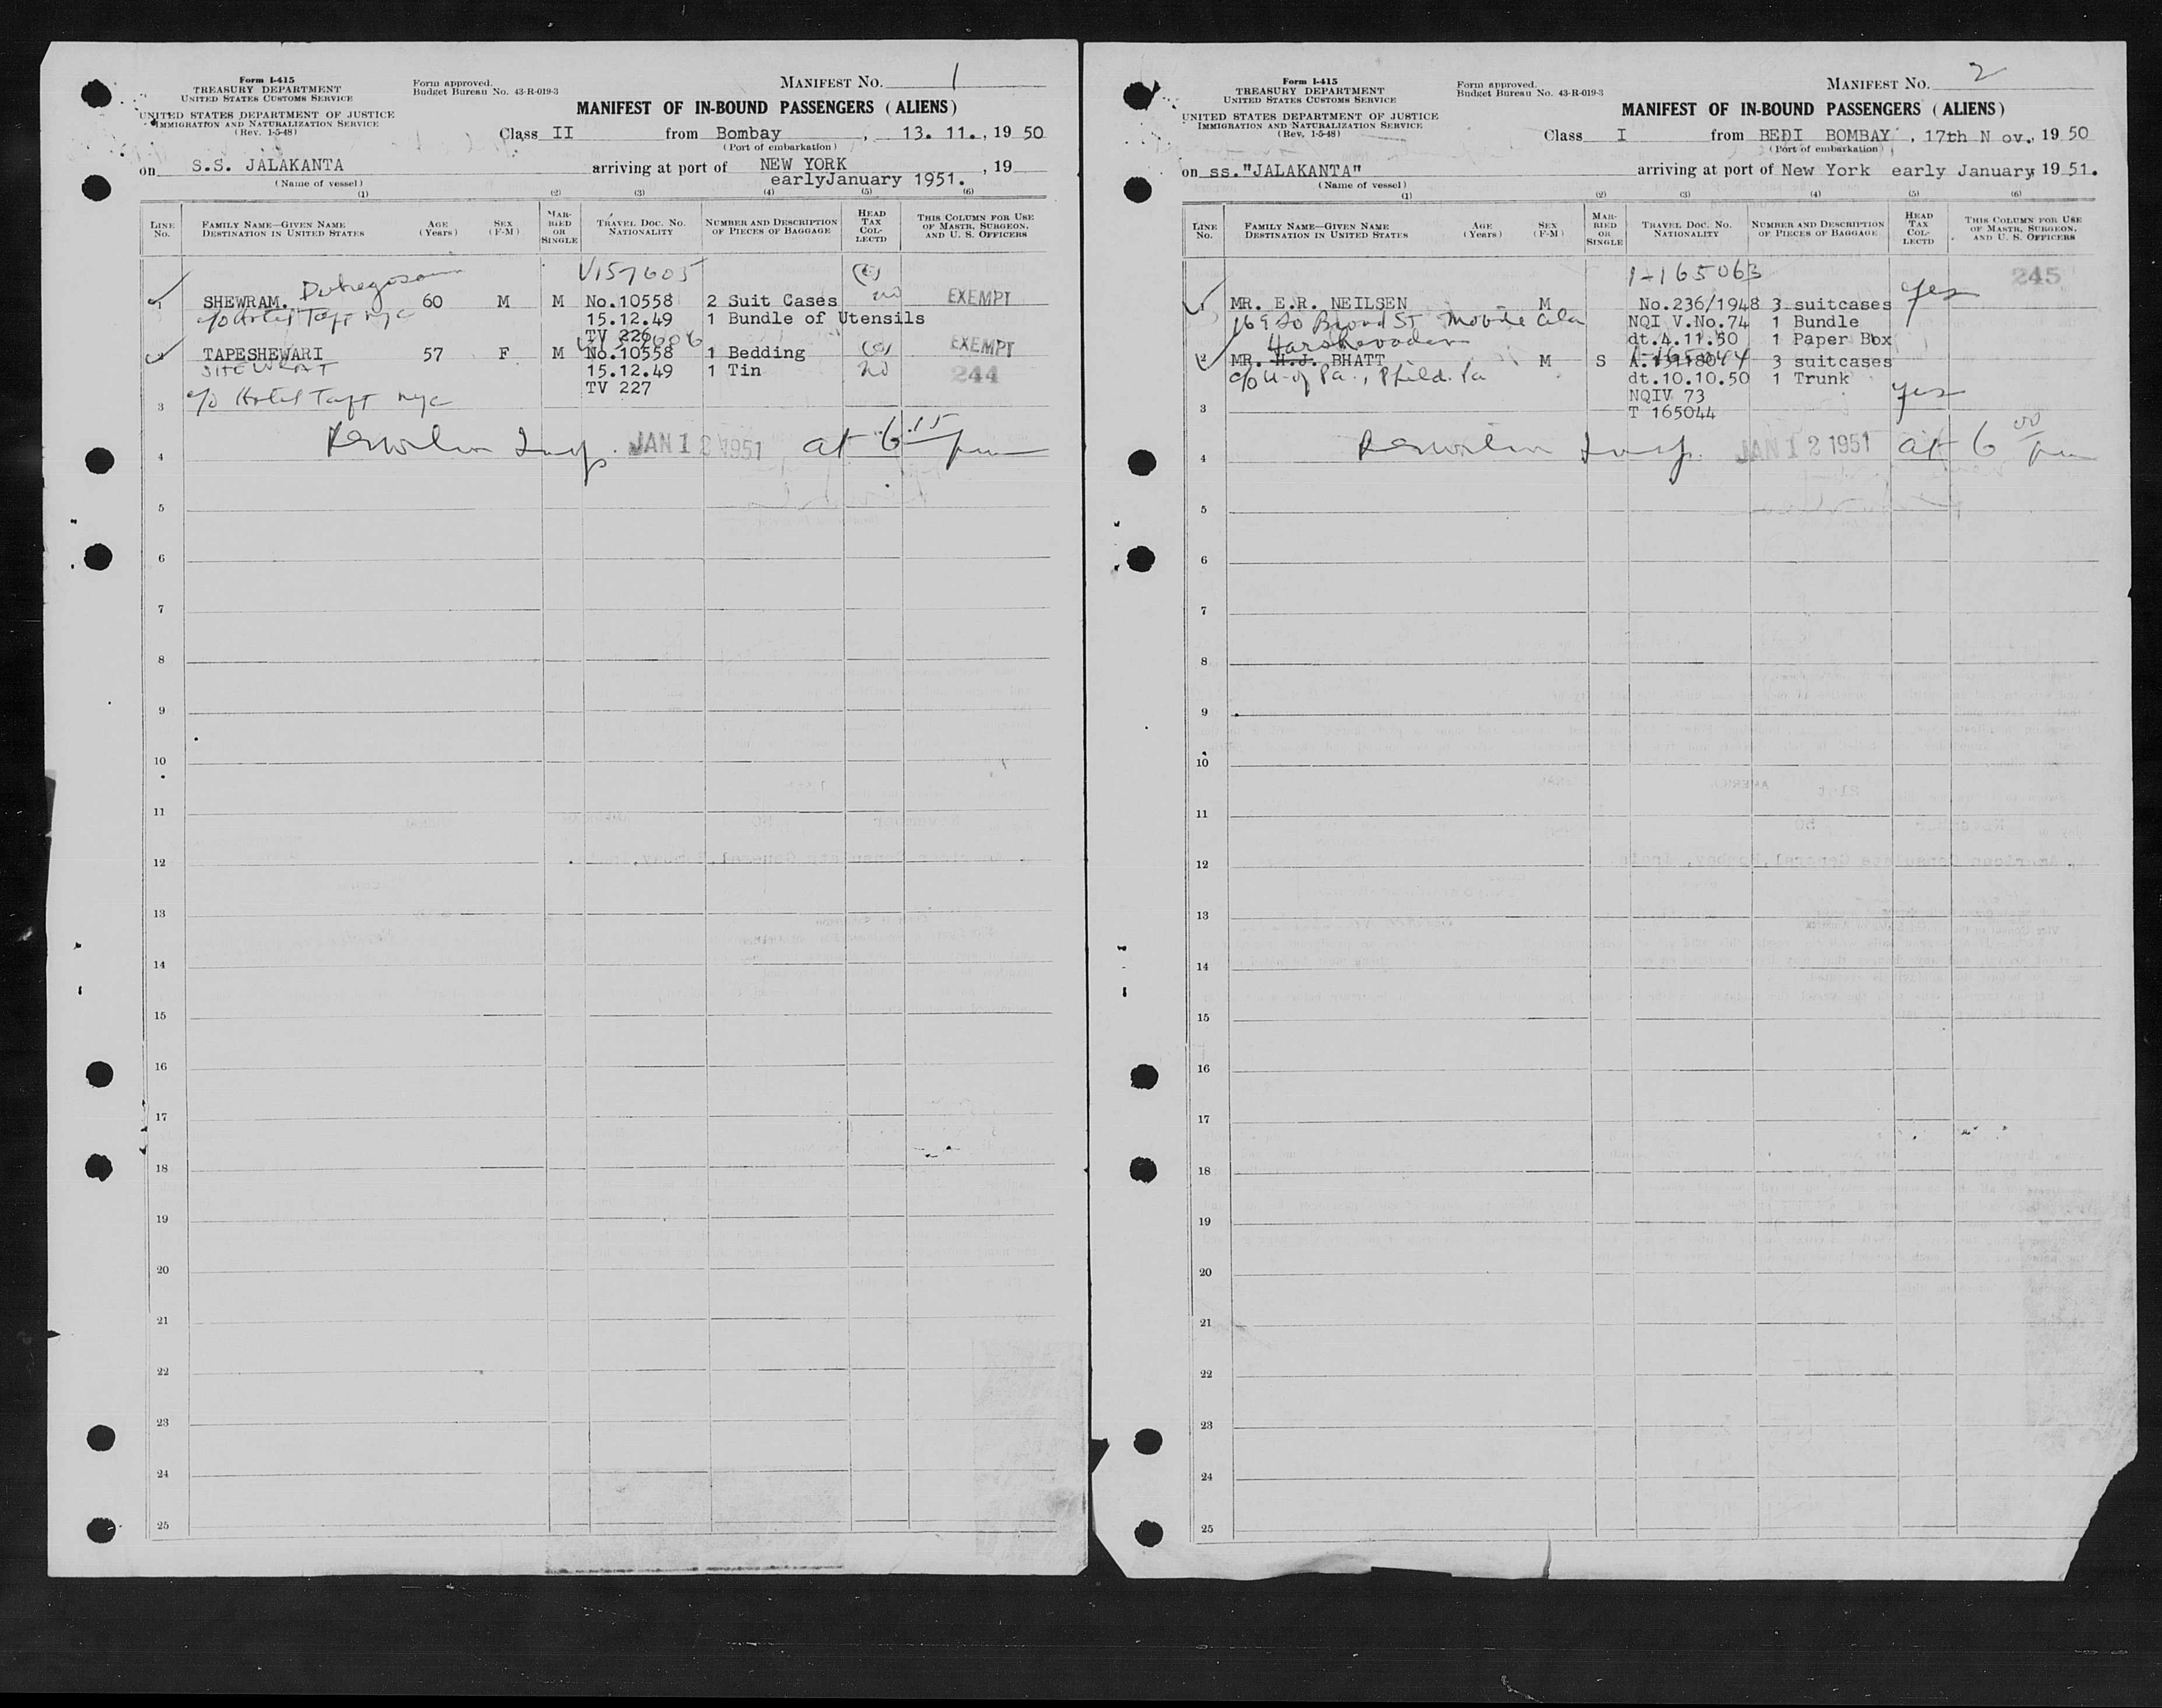 Form I-415
TREASURY DEPARTMENT
UNITED STATES CUSTOMS SERVICE
UNITED STATES DEPARTMENT OF JUSTICE
IMMIGRATION AND NATURALIZATION SERVICE
(Rev. 1-5-48)
Form approved.
Budget Bureau No. 43-R-019-3
MANIFEST No. 1
MANIFEST OF IN-BOUND PASSENGERS (ALIENS)
Class II from Bombay, 13. 11., 19 50
(Port of embarkation)
on S.S. JALAKANTA arriving at port of NEW YORK, 19
(Name of vessel) earlyJanuary 1951.
(1) (2) (3) (4) (5) (6)
LINE No. FAMILY NAME—GIVEN NAME DESTINATION IN UNITED STATES AGE (Years) SEX (F-M) MARRIED OR SINGLE TRAVEL DOC. NO. NATIONALITY NUMBER AND DESCRIPTION OF PIECES OF BAGGAGE HEAD TAX COLLECTD THIS COLUMN FOR USE OF MASTR, SURGEON, AND U. S. OFFICERS
V157605
1 SHEWRAM. 60 M M No.10558 2 Suit Cases no EXEMPT
c/o Hotel Taft NYC 15.12.49 1 Bundle of Utensils
TV 226
2 TAPESHEWARI 57 F M No.10558 1 Bedding EXEMPT
15.12.49 1 Tin no 244
TV 227
3 c/o Hotel Taft NYC
4 JAN 12 1951 at 6.15 pm
5
6
7
8
9
10
11
12
13
14
15
16
17
18
19
20
21
22
23
24
25
Form I-415
TREASURY DEPARTMENT
UNITED STATES CUSTOMS SERVICE
UNITED STATES DEPARTMENT OF JUSTICE
IMMIGRATION AND NATURALIZATION SERVICE
(Rev. 1-5-48)
Form approved.
Budget Bureau No. 43-R-019-3
MANIFEST No. 2
MANIFEST OF IN-BOUND PASSENGERS (ALIENS)
Class I from BEDI BOMBAY, 17th Nov., 19 50
(Port of embarkation)
on ss."JALAKANTA" arriving at port of New York early January, 19 51.
(Name of vessel)
(1) (2) (3) (4) (5) (6)
LINE No. FAMILY NAME—GIVEN NAME DESTINATION IN UNITED STATES AGE (Years) SEX (F-M) MARRIED OR SINGLE TRAVEL DOC. NO. NATIONALITY NUMBER AND DESCRIPTION OF PIECES OF BAGGAGE HEAD TAX COLLECTD THIS COLUMN FOR USE OF MASTR, SURGEON, AND U. S. OFFICERS
1-165063 245
1 MR. E.R. NEILSEN M No.236/1948 3 suitcases yes
169 So Broad St Mobile Ala NQI V.No.74 1 Bundle
dt.4.11.50 1 Paper Box
2 MR. H.J. BHATT M S 3 suitcases
c/o U of Pa., Phild. Pa dt.10.10.50 1 Trunk
NQIV 73 yes
3 T 165044
4 JAN 12 1951 at 6 00 pm
5
6
7
8
9
10
11
12
13
14
15
16
17
18
19
20
21
22
23
24
25